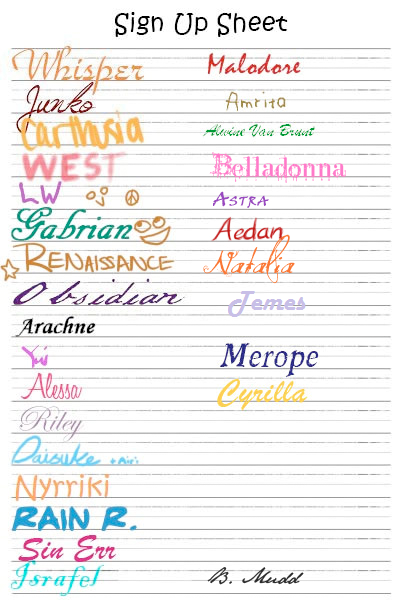 Sign Up Sheet
Whisper
Junko
Carthusia
WEST
LW
Gabrian
RENAISSANCE
Obsidian
Arachne
Yui
Alessa
Riley
Daisuke + Miri
Nyrriki
RAIN R.
Sin Err
Israfel
Malodore
Amrita
Alwine Van Brunt
Belladonna
ASTRA
Aedan
Natalia
Temes
Merope
Cyrilla
B. Mudd